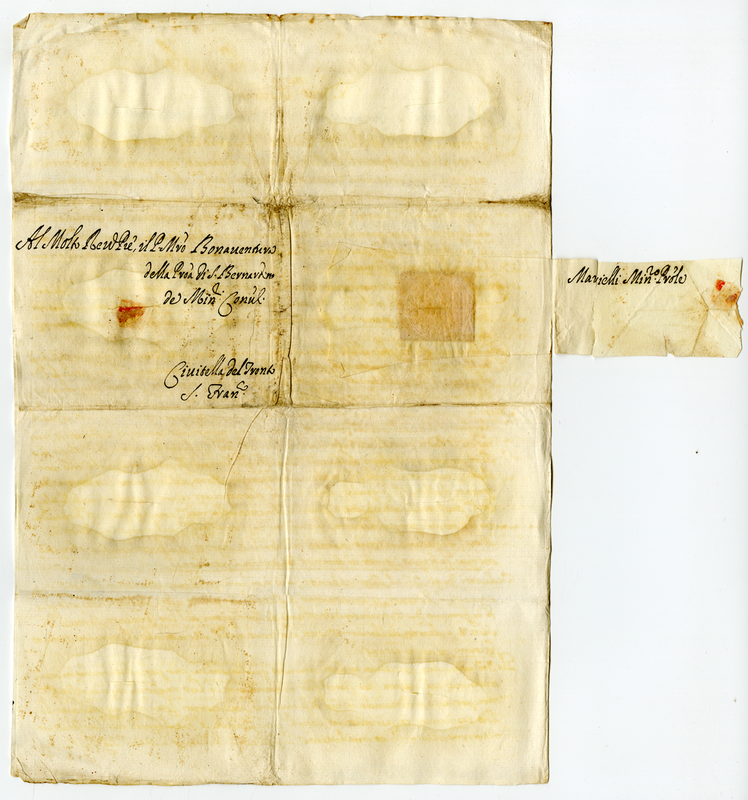 Al Molto Revd Pre, il P. Mro Bonaventura
della Proa di S. Bernardin
de Min: Conul.
Civitella del Tronto
S. Franco
Marielli Mino Prole